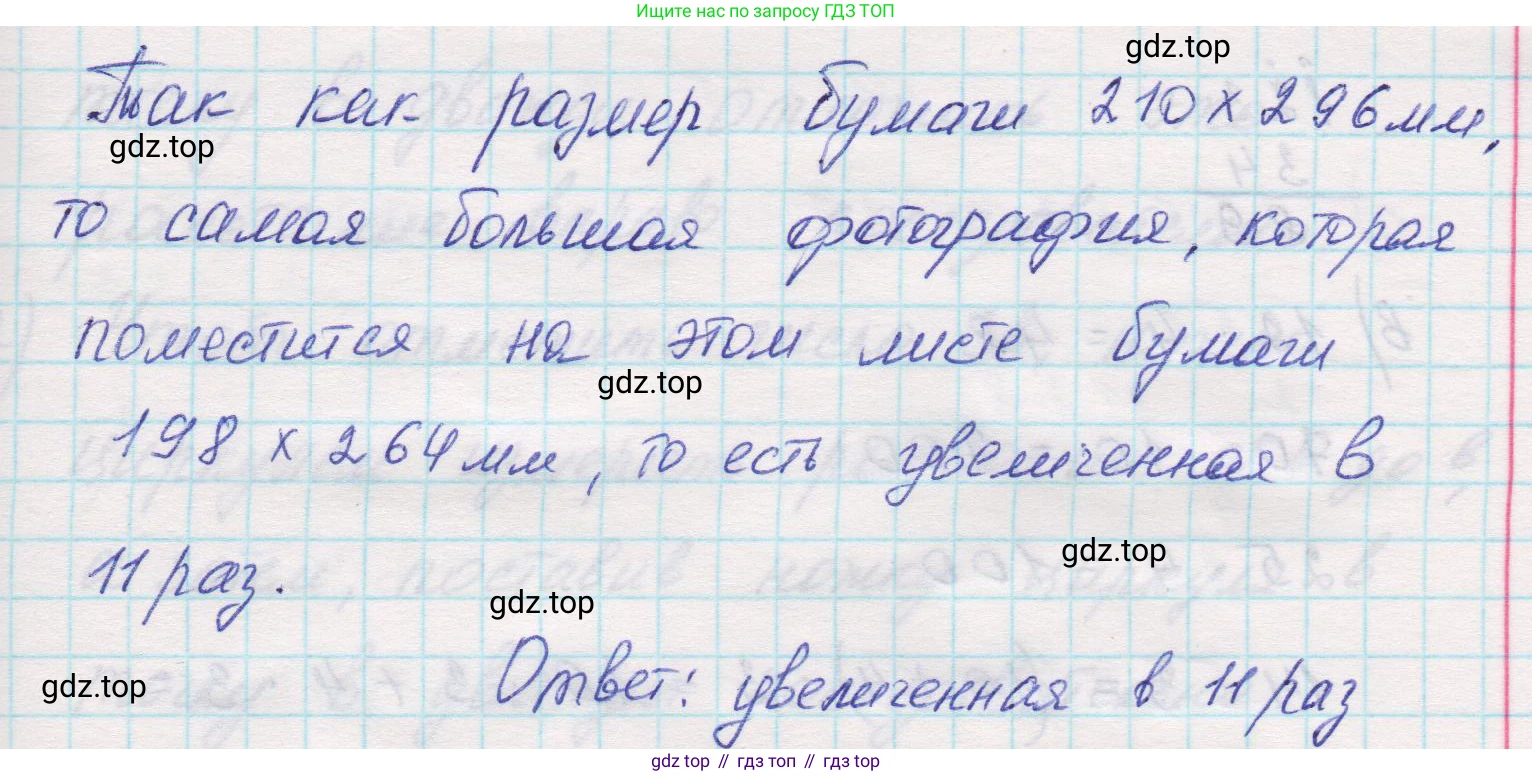 Ищите нас по запросу ГДЗ ТОП
gdz.top
Так как размер бумаги 210 х 296 мм,
gdz.top
то самая большая фотография, которая
поместится на этом листе бумаги
gdz.top
198 х 264 мм, то есть увеличенная в
gdz.top
11 раз.
gdz.top
gdz.top
Ответ: увеличенная в 11 раз
gdz.top // гдз топ // гдз top